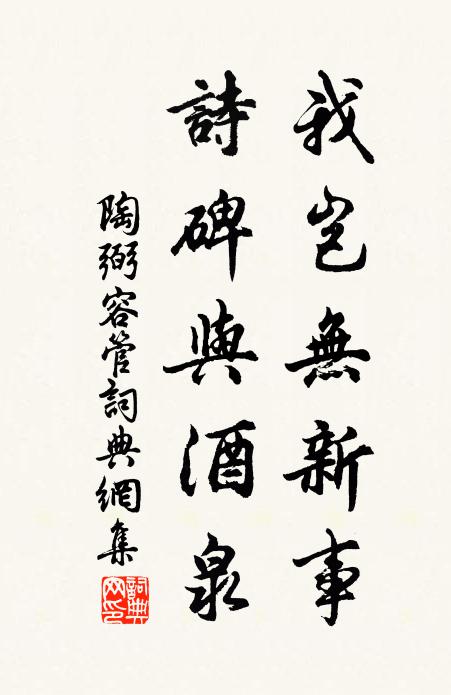 我豈無新事
詩碑與酒泉
陶弼容管詞典網集
詞典网印